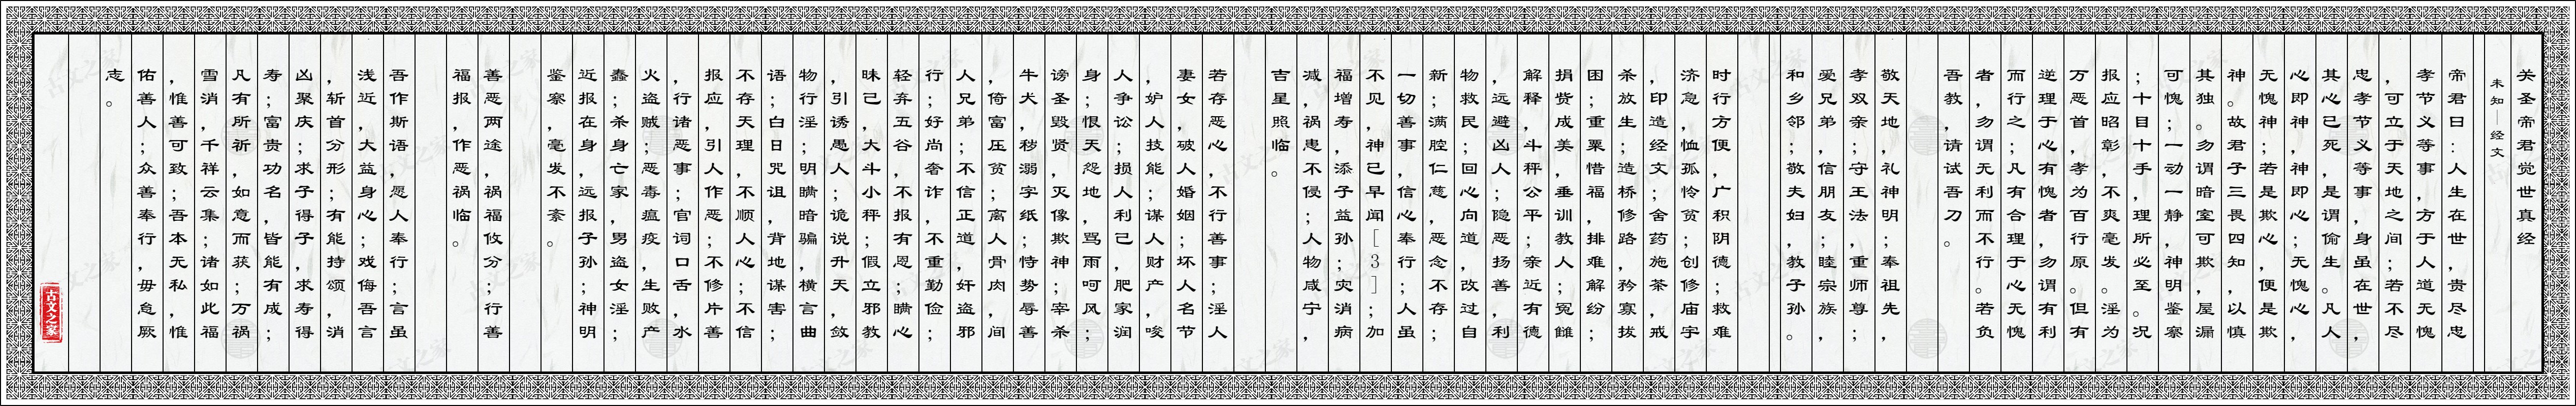 关圣帝君觉世真经
未知—经文
帝君曰：人生在世，贵尽忠
孝节义等事，方于人道无愧
，可立于天地之间；若不尽
忠孝节义等事，身虽在世，
其心已死，是谓偷生。凡人
心即神，神即心；无愧心，
无愧神；若是欺心，便是欺
神。故君子三畏四知，以慎
其独。勿谓暗室可欺，屋漏
可愧；一动一静，神明鉴察
；十目十手，理所必至。况
报应昭彰，不爽毫发。淫为
万恶首，孝为百行原。但有
逆理于心有愧者，勿谓有利
而行之；凡有合理于心无愧
者，勿谓无利而不行。若负
吾教，请试吾刀。
敬天地，礼神明；奉祖先，
孝双亲；守王法，重师尊；
爱兄弟，信朋友；睦宗族，
和乡邻；敬夫妇，教子孙。
时行方便，广积阴德；救难
济急，恤孤怜贫；创修庙宇
，印造经文；舍药施茶，戒
杀放生；造桥修路，矜寡拔
困；重粟惜福，排难解纷；
捐赀成美，垂训教人；冤雠
解释，斗秤公平；亲近有德
，远避凶人；隐恶扬善，利
物救民；回心向道，改过自
新；满腔仁慈，恶念不存；
一切善事，信心奉行；人虽
不见，神已早闻［3］；加
福增寿，添子益孙；灾消病
减，祸患不侵；人物咸宁，
吉星照临。
若存恶心，不行善事；淫人
妻女，破人婚姻；坏人名节
，妒人技能；谋人财产，唆
人争讼；损人利己，肥家润
身；恨天怨地，骂雨呵风；
谤圣毁贤，灭像欺神；宰杀
牛犬，秽溺字纸；恃势辱善
，倚富压贫；离人骨肉，间
人兄弟；不信正道，奸盗邪
行；好尚奢诈，不重勤俭；
轻弃五谷，不报有恩；瞒心
昧己，大斗小秤；假立邪教
，引诱愚人；诡说升天，敛
物行淫；明瞒暗骗，横言曲
语；白日咒诅，背地谋害；
不存天理，不顺人心；不信
报应，引人作恶；不修片善
，行诸恶事；官词口舌，水
火盗贼；恶毒瘟疫，生败产
蠢；杀身亡家，男盗女淫；
近报在身，远报子孙；神明
鉴察，毫发不紊。
善恶两途，祸福攸分；行善
福报，作恶祸临。
吾作斯语，愿人奉行；言虽
浅近，大益身心；戏侮吾言
，斩首分形；有能持颂，消
凶聚庆；求子得子，求寿得
寿；富贵功名，皆能有成；
凡有所祈，如意而获；万祸
雪消，千祥云集；诸如此福
，惟善可致；吾本无私，惟
佑善人；众善奉行，毋怠厥
志。
古文之家